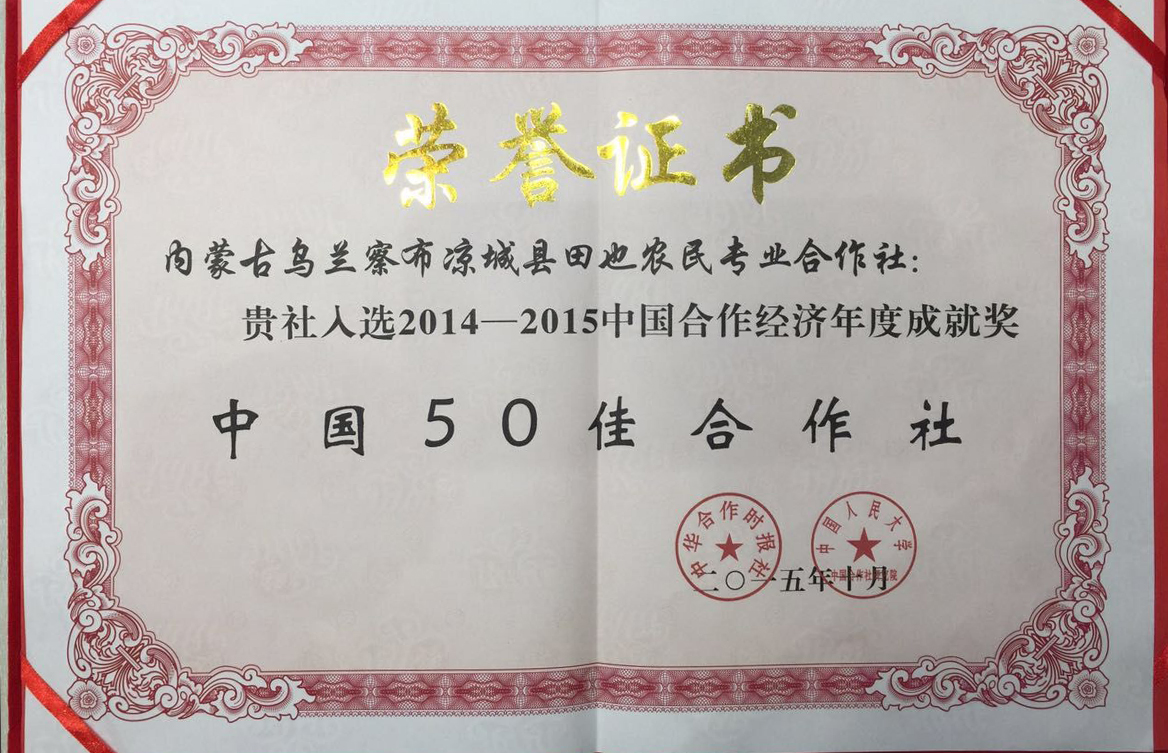 荣誉证书
内蒙古乌兰察布凉城县田也农民专业合作社：
贵社入选2014—2015中国合作经济年度成就奖
中国50佳合作社
中华合作时报社
中国人民大学
中国合作社研究院
二〇一五年十月